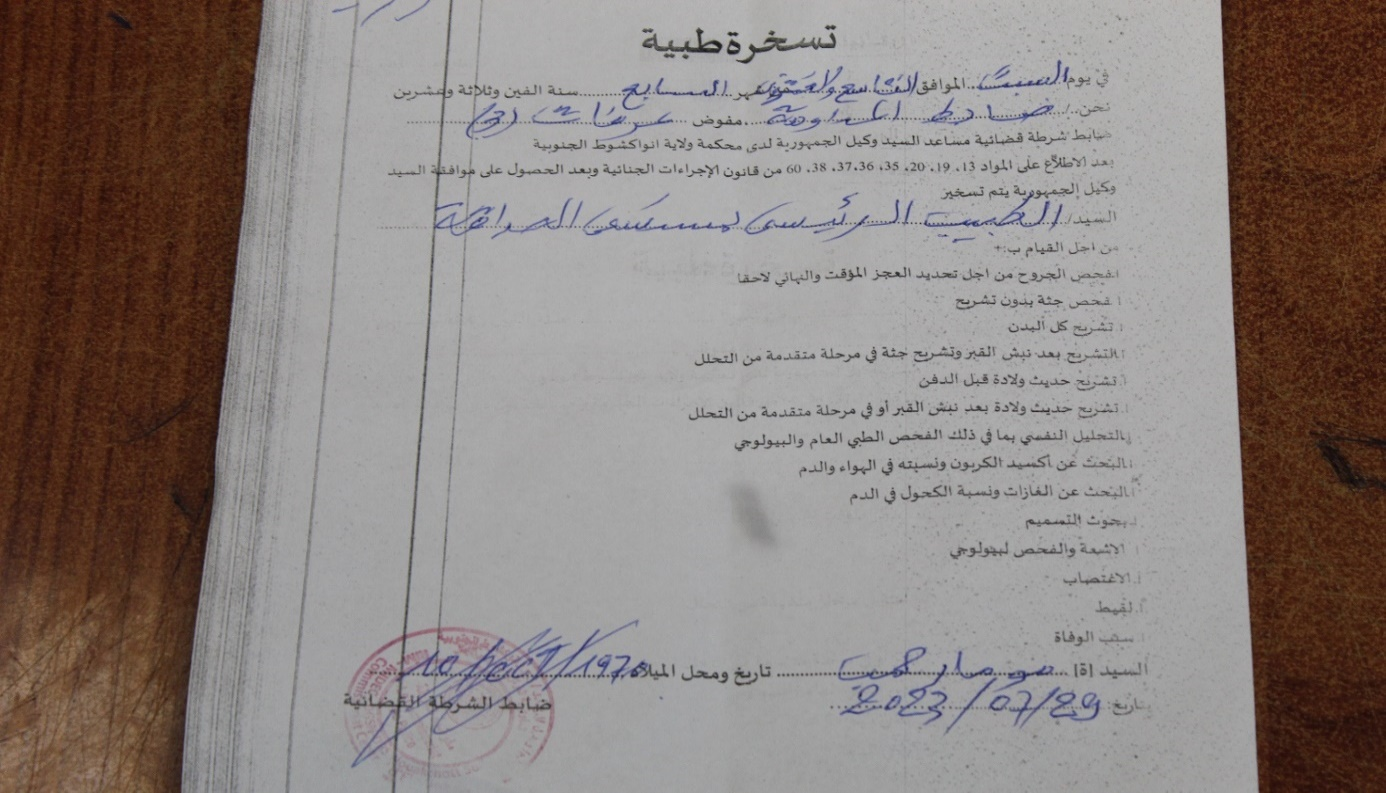 تسخرة طبية
في يوم السبت الموافق التاسع والعشرون شهر السابع سنة الفين وثلاثة وعشرين
نحن / ضابط المداومة مفوض عرفات (3)
ضابط شرطة قضائية مساعد السيد وكيل الجمهورية لدى محكمة ولاية انواكشوط الجنوبية
بعد الاطلاع على المواد 13، 19، 20، 35، 36،37، 38، 60 من قانون الإجراءات الجنائية وبعد الحصول على موافقة السيد
وكيل الجمهورية يتم تسخير
السيد/ الطبيب الرئيسي
من اجل القيام ب:+
افحص الجروح من اجل تحديد العجز المؤقت والنهائي لاحقا
فحص جثة بدون تشريح
تشريح كل البدن
التشريح بعد نبش القبر وتشريح جثة في مرحلة متقدمة من التحلل
تشريح حديث ولادة قبل الدفن
تشريح حديث ولادة بعد نبش القبر أو في مرحلة متقدمة من التحلل
التحليل النفسي بما في ذلك الفحص الطبي العام والبيولوجي
البحث عن أكسيد الكربون ونسبته في الهواء والدم
البحث عن الغازات ونسبة الكحول في الدم
بحوث التسميم
الاشعة والفحص لبيولوجي
الاغتصاب
لقيط
سبب الوفاة
السيد (ة) تاريخ ومحل الميلاد
تاريخ: 2023/07/29
ضابط الشرطة القضائية